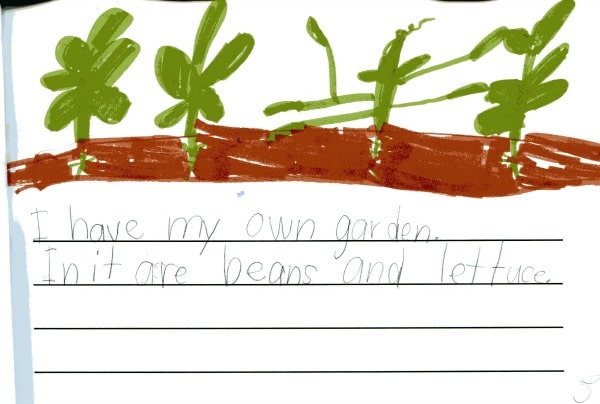 I have my own garden.
In it are beans and lettuce.